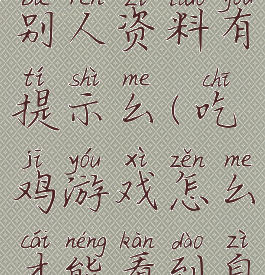 bié rén zī liào yǒu
别人资料有
tí shì me chī
提示么(吃
jī yóu xì zěn me
鸡游戏怎么
cái néng kàn dào zì
才能看到自